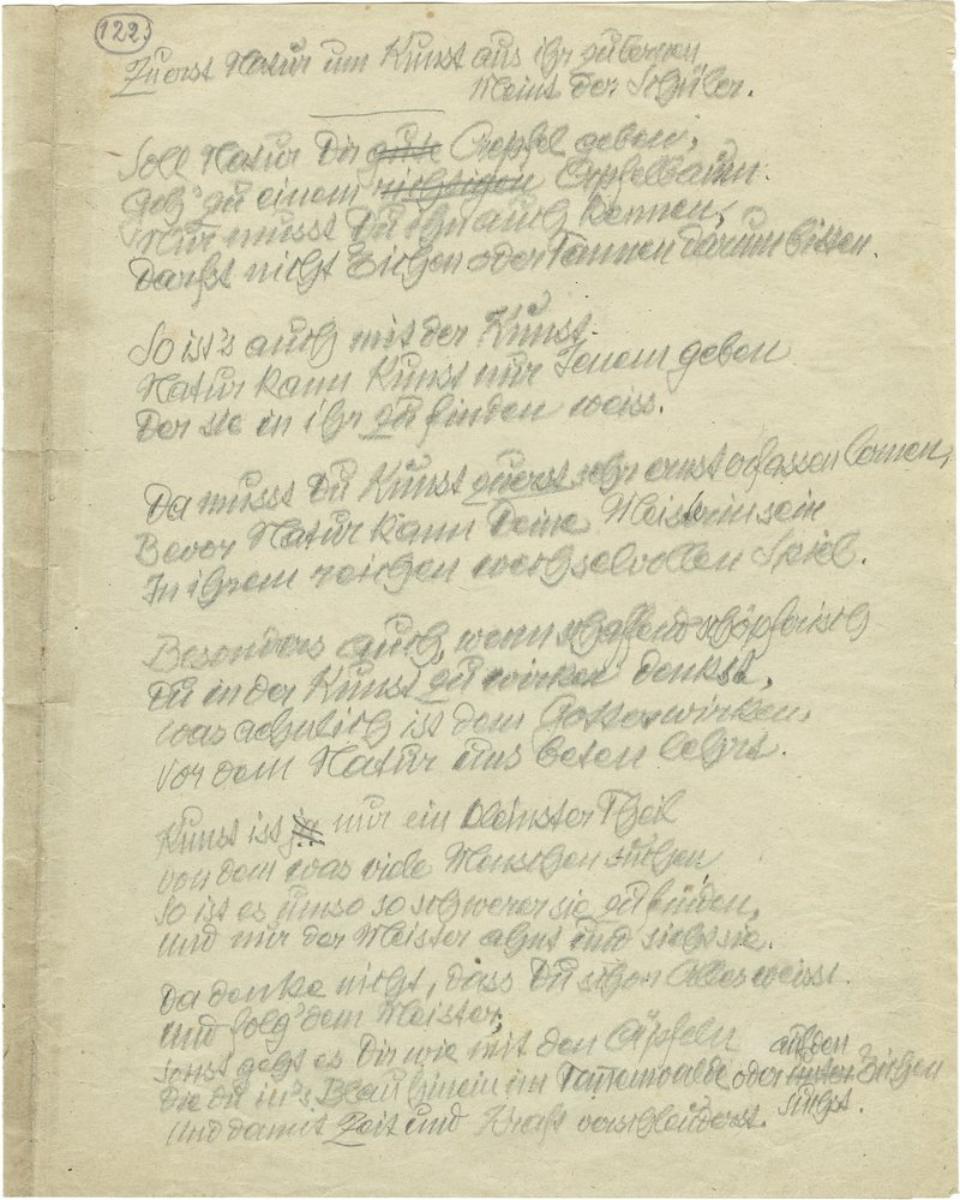 122
Zuerst Natur um Kunst aus ihr zu lernen
Meint der Schüler.
Soll Natur Dir gute Aepfel geben,
Geh' zu einem richtigen Apfelbaum.
Nur musst Du ihn auch kennen,
Darfst nicht Eichen oder Tannen darum bitten.
So ist's auch mit der Kunst.
Natur kann Kunst nur Jenem geben
Der sie in ihr zu finden weiss.
Da musst Du Kunst zuerst sehr ernst erfassen lernen,
Bevor Natur kann Deine Meisterin sein
In ihrem reichen wechselvollen Spiel.
Besonders auch, wenn schaffend schöpferisch
Du in der Kunst zu wirken denkst,
Was aehnlich ist dem Gotteswirken,
Vor dem Natur uns beten lehrt.
Kunst ist ja nur ein kleinster Theil
von dem was viele Menschen suchen
So ist es umso so schwerer sie zu finden,
und nur der Meister ahnt und sieht sie.
Da denke nicht, dass Du schon Alles weisst.
Und folg' dem Meister,
sonst geht es Dir wie mit den Äpfeln
Die Du in's Blau hinein im Tannenwalde oder unter auf den Eichen
suchst.
Und damit Zeit und Kraft verschleuderst.